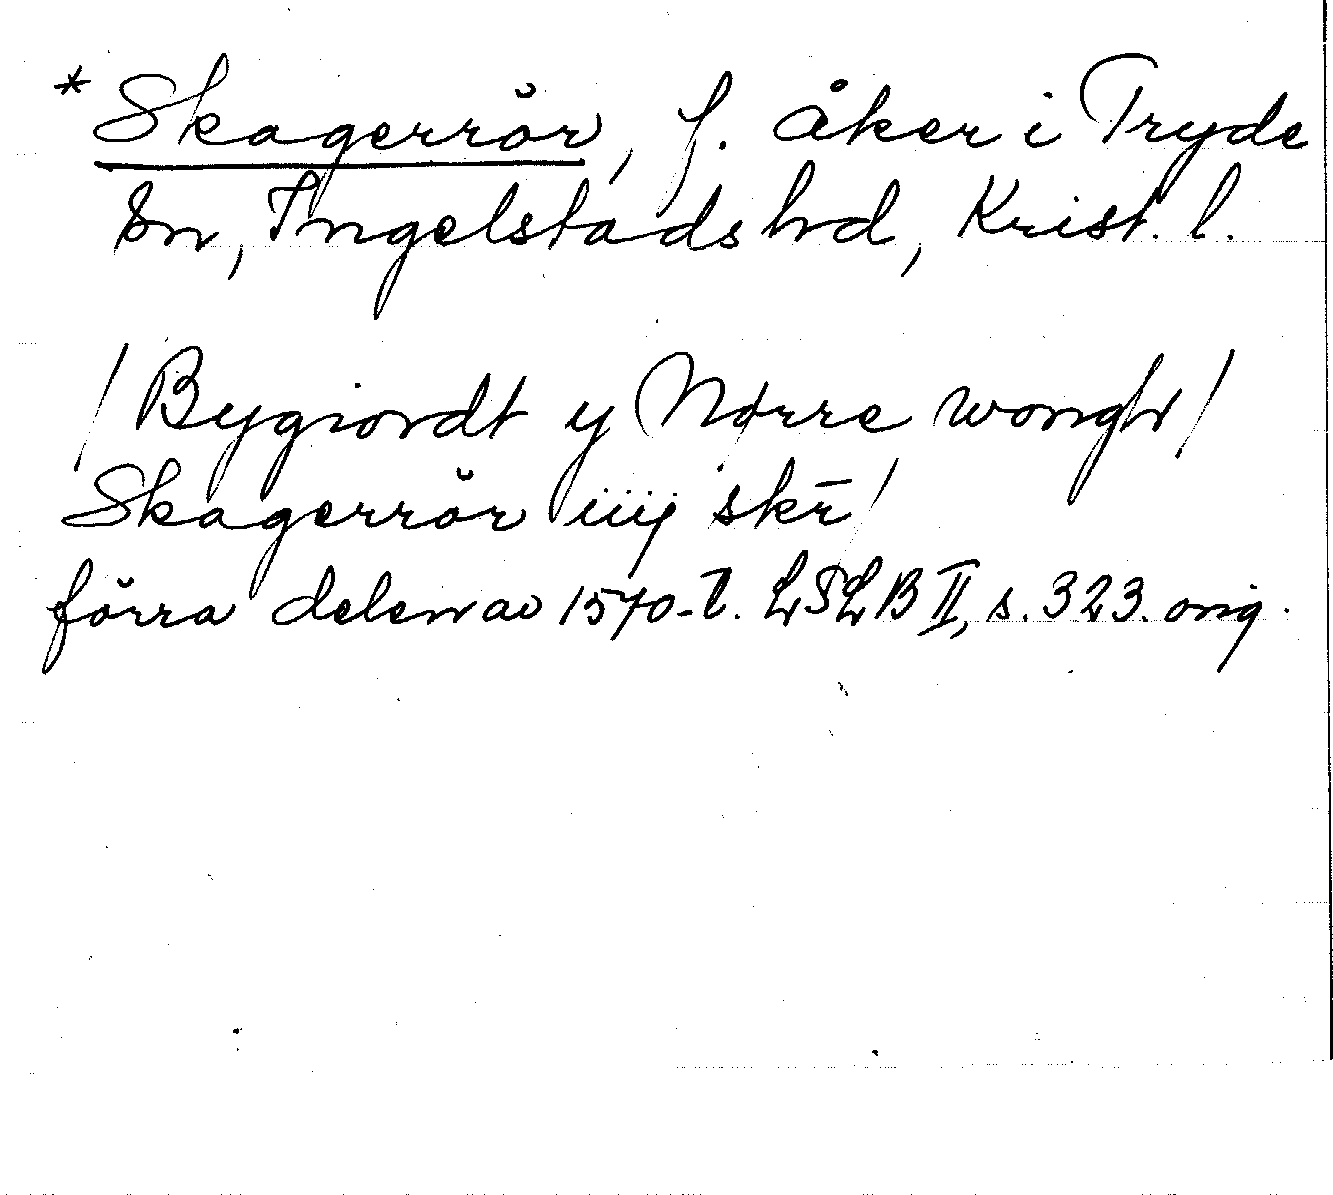 * Skagerrör, f. åker i Tryde
sn, Ingelstads hd, Krist. l.
/Bygiordt y Nørre wongh/
Skagerrör iiij skē/
förra delen av 1570-t. LSLB II, s. 323. orig.